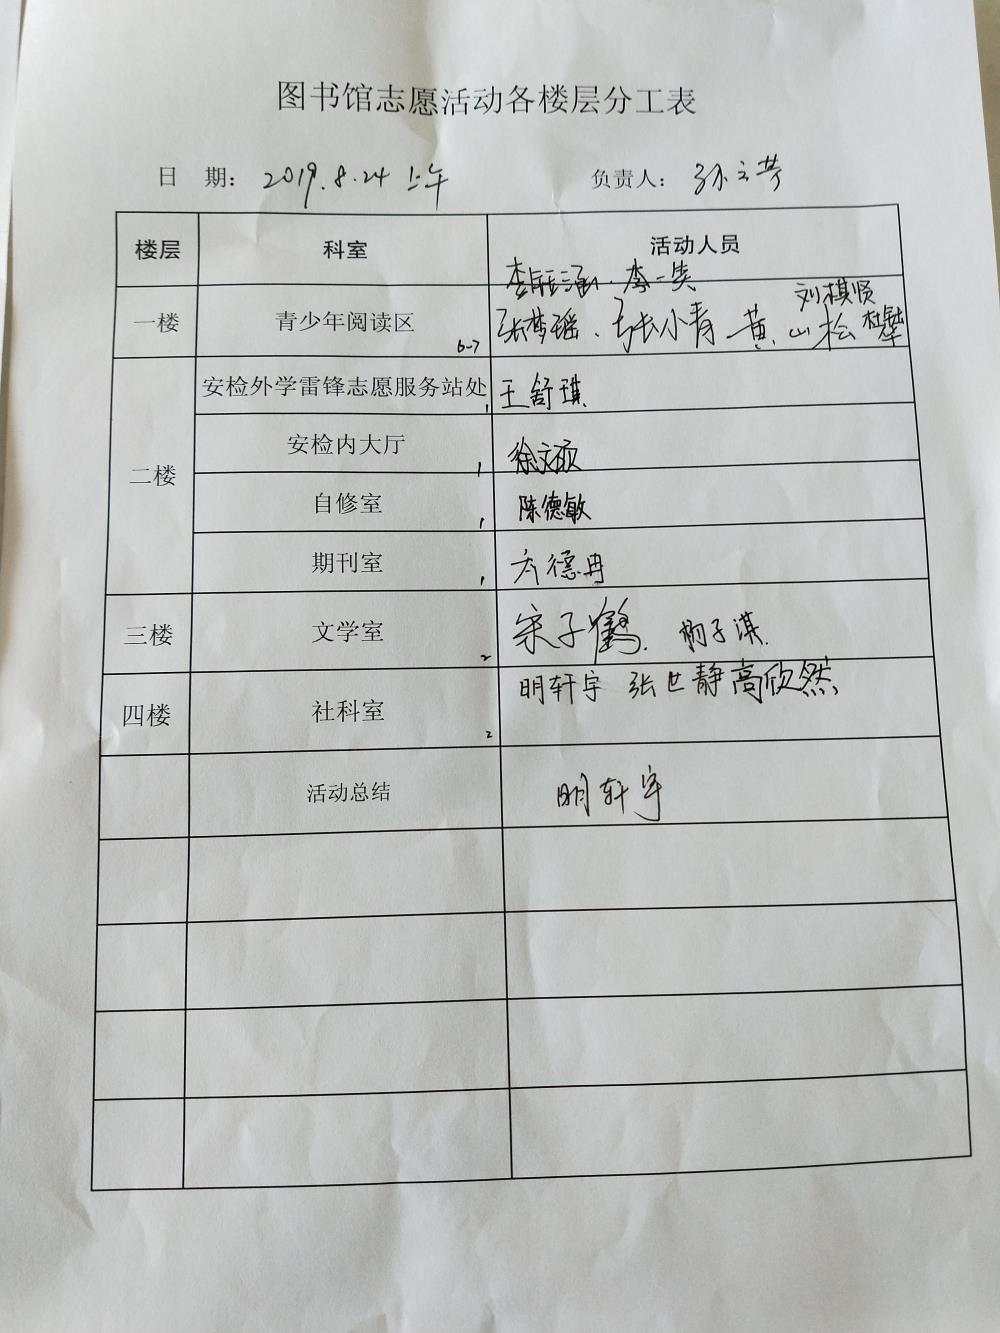 图书馆志愿活动各楼层分工表
日 期： 2019.8.24 上午 负责人： 孙立芳
楼层 科室 活动人员
李 涵、李一笑
刘棋贤
一楼 青少年阅读区 6-7 张梦瑶、张小青 黄山松 杜
二楼
安检外学雷锋志愿服务站处 1 王舒琪
安检内大厅 1 徐文硕
自修室 1 陈德敏
期刊室 1 齐德冉
三楼 文学室 2 宋子鹤. 子淇.
四楼 社科室 2 明轩宇 张世静 高欣然
活动总结 明轩宇